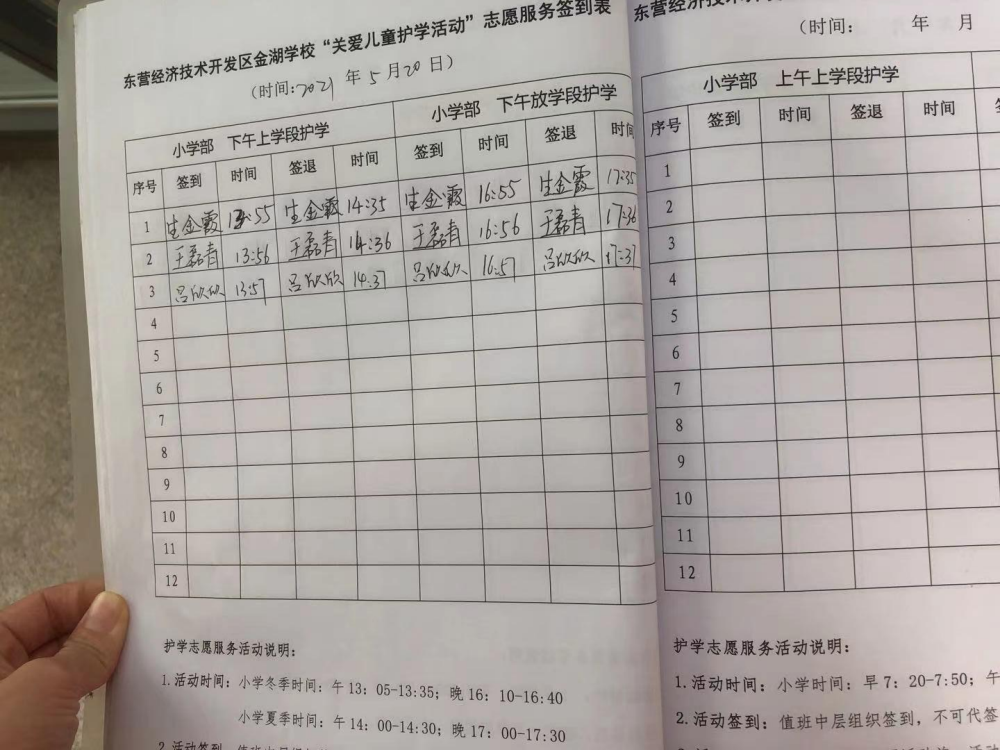 东营经济技术开发区金湖学校“关爱儿童护学活动”志愿服务签到表
（时间：2021 年 5 月 20 日）
小学部 下午上学段护学 小学部 下午放学段护学
序号 签到 时间 签退 时间 签到 时间 签退 时间
1 生金霞 13:55 生金霞 14:35 生金霞 16:55 生金霞 17:35
2 王磊青 13:56 王磊青 14:36 王磊青 16:56 王磊青 17:36
3 吕欣欣 13:57 吕欣欣 14:37 吕欣欣 16:57 吕欣欣 17:37
4
5
6
7
8
9
10
11
12
护学志愿服务活动说明：
1.活动时间：小学冬季时间：午 13：05-13:35；晚 16：10-16:40
小学夏季时间：午 14：00-14:30；晚 17：00-17:30
2.活动签到：
东营经济技术开
（时间： 年 月
小学部 上午上学段护学
序号 签到 时间 签退 时间
1
2
3
4
5
6
7
8
9
10
11
12
护学志愿服务活动说明：
1.活动时间：小学时间：早 7：20-7:50；午
2.活动签到：值班中层组织签到，不可代签